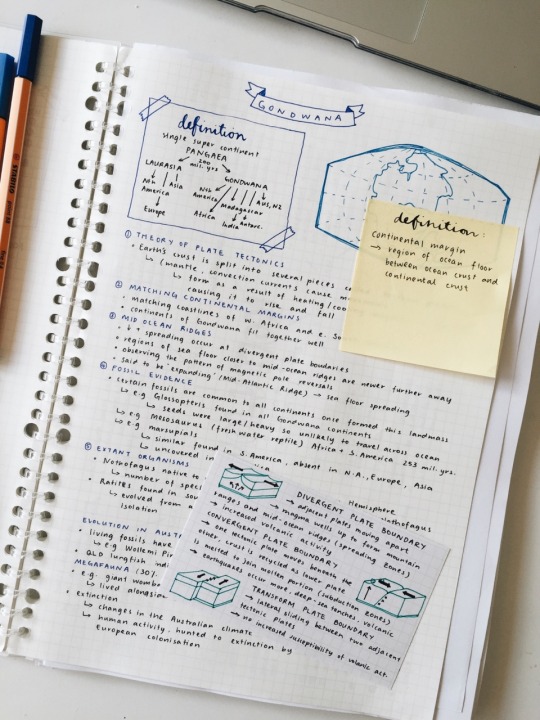 GONDWANA
definition
single super continent
PANGAEA
200
mil. yrs.
LAURASIA
GONDWANA
Nth America
Asia
Nth America
Aus, NZ
Madagascar
Europe
Africa
India
Antarc.
definition:
continental margin
→ region of ocean floor
between ocean crust and
continental crust
① THEORY OF PLATE TECTONICS
• Earth's crust is split into several pieces
↳ (mantle, convection currents cause
↳ form as a result of heating/
causing it to rise and fall
② MATCHING CONTINENTAL MARGINS
• matching coastlines of W. Africa and e. So
• continents of Gondwana fit together well
③ MID OCEAN RIDGES
• spreading occur at divergent plate boudaries
• regions of sea floor closer to mid-ocean ridges are newer further away
• observing the pattern of magnetic pole reversals
• said to be 'expanding' (Mid-Atlantic Ridge) → sea floor spreading
④ FOSSIL EVIDENCE
• certain fossils are common to all continents once formed this landmass
↳ e.g Glossopteris found in all Gondwana continents
↳ seeds were large/heavy so unlikely to travel across ocean
↳ e.g Mesosaurus (freshwater reptile) Africa + S.America 253 mil. yrs.
↳ e.g marsupials
↳ similar found in S.America, absent in N.A, Europe, Asia
↳ uncovered in
⑤ EXTANT ORGANISMS
Hemisphere
• Nothofagus native to
nothofagus
↳ number of spec
• Ratites found in sou
↳ evolved from a
isolation
EVOLUTION IN AUST
• living fossils have
↳ e.g Wollemi Pi
• QLD lungfish indi
MEGAFAUNA (30%
• e.g. giant womba
↳ lived alongside
• extinction
↳ changes in the Australian climate
↳ human activity, hunted to extinction by
European colonisation
DIVERGENT PLATE BOUNDARY
→ adjacent plates moving apart
→ magma wells up to form mountain
ranges and mid-ocean ridges (spreading zones)
→ increased volcanic activity
CONVERGENT PLATE BOUNDARY
→ one tectonic plate moves beneath the
other, crust is recycled to lower plate
→ melted to join molten portion (subduction zones)
→ earthquakes occur more, deep-sea trenches, volcanic
TRANSFORM PLATE BOUNDARY
→ lateral sliding between two adjacent
tectonic plates
→ no increased susceptibility of volanic act.